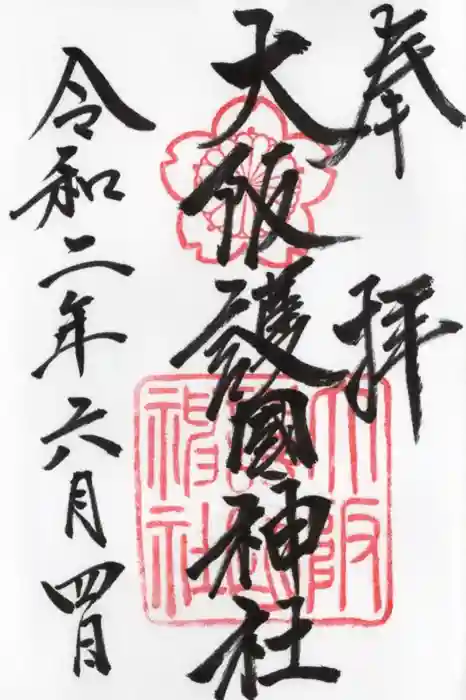 奉拝
大阪護國神社
令和二年六月四日
大阪
神社